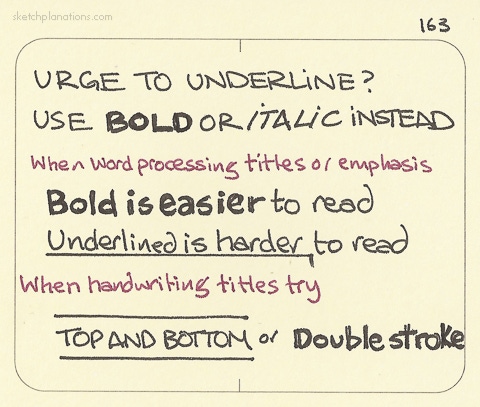 sketchplanations.com
163
URGE TO UNDERLINE?
USE BOLD OR ITALIC INSTEAD
When word processing titles or emphasis
Bold is easier to read
Underlined is harder to read
When handwriting titles try
TOP AND BOTTOM or Double stroke